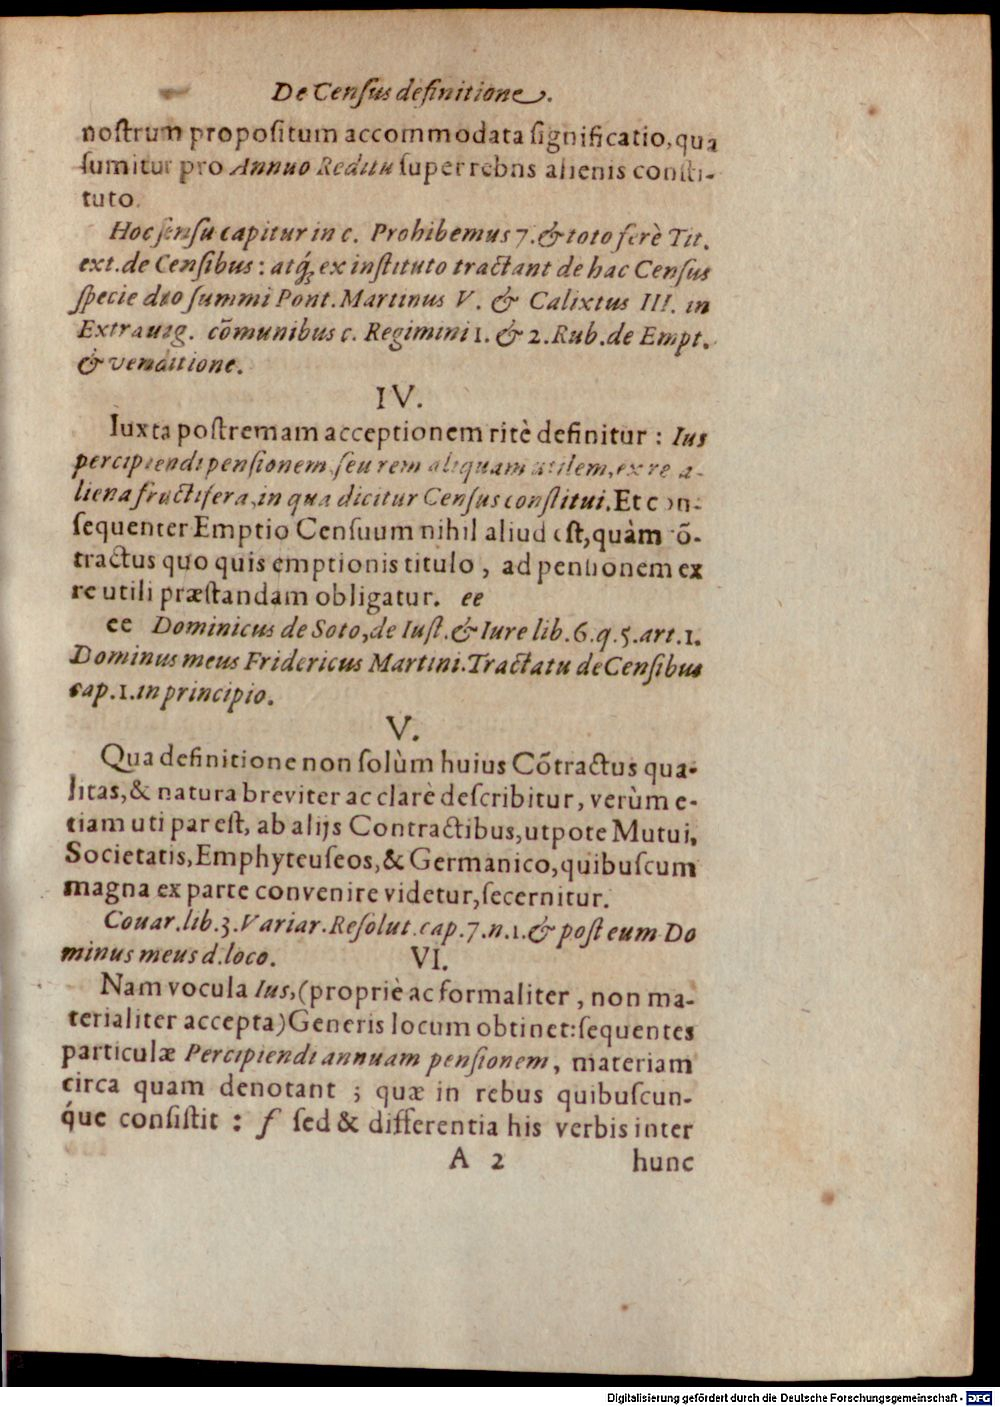 De Censûs definitione.
noſtrum propoſitum accommodata ſignificatio, qua
ſumitur pro Annuo Reditu ſuper rebus alienis conſti-
tuto.
Hoc ſenſu capitur in c. Prohibemus 7. & toto ferè Tit.
ext. de Cenſibus : atq́; ex inſtituto tractant de hac Cenſus
ſpecie duo ſummi Pont. Martinus V. & Calixtus III. in
Extrauag. cõmunibus c. Regimini 1. & 2. Rub. de Empt.
& venditione.
IV.
Iuxta poſtremam acceptionem ritè definitur : Ius
percipiendi penſionem, ſeu rem aliquam utilem, ex re a-
liena fructifera, in qua dicitur Cenſus conſtitui. Et con-
ſequenter Emptio Cenſuum nihil aliud eſt, quàm cõ-
tractus quo quis emptionis titulo, ad penſionem ex
re utili præſtandam obligatur. ee
ee Dominicus de Soto, de Iuſt. & Iure lib. 6. q. 5. art. 1.
Dominus meus Fridericus Martini. Tractatu de Cenſibus
cap. 1. in principio.
V.
Qua definitione non ſolùm huius Cõtractus qua-
litas, & natura breviter ac clarè deſcribitur, verùm e-
tiam uti par eſt, ab alijs Contractibus, utpote Mutui,
Societatis, Emphyteuſeos, & Germanico, quibuſcum
magna ex parte convenire videtur, ſecernitur.
Couar. lib. 3. Variar. Reſolut. cap. 7. n. 1. & poſt eum Do
minus meus d. loco.
VI.
Nam vocula Ius, (propriè ac formaliter, non ma-
terialiter accepta) Generis locum obtinet: ſequentes
particulæ Percipiendi annuam penſionem, materiam
circa quam denotant ; quæ in rebus quibuſcun-
q́ue conſiſtit : f ſed & differentia his verbis inter
A 2 hunc
Digitalisierung gefördert durch die Deutsche Forschungsgemeinschaft - DFG